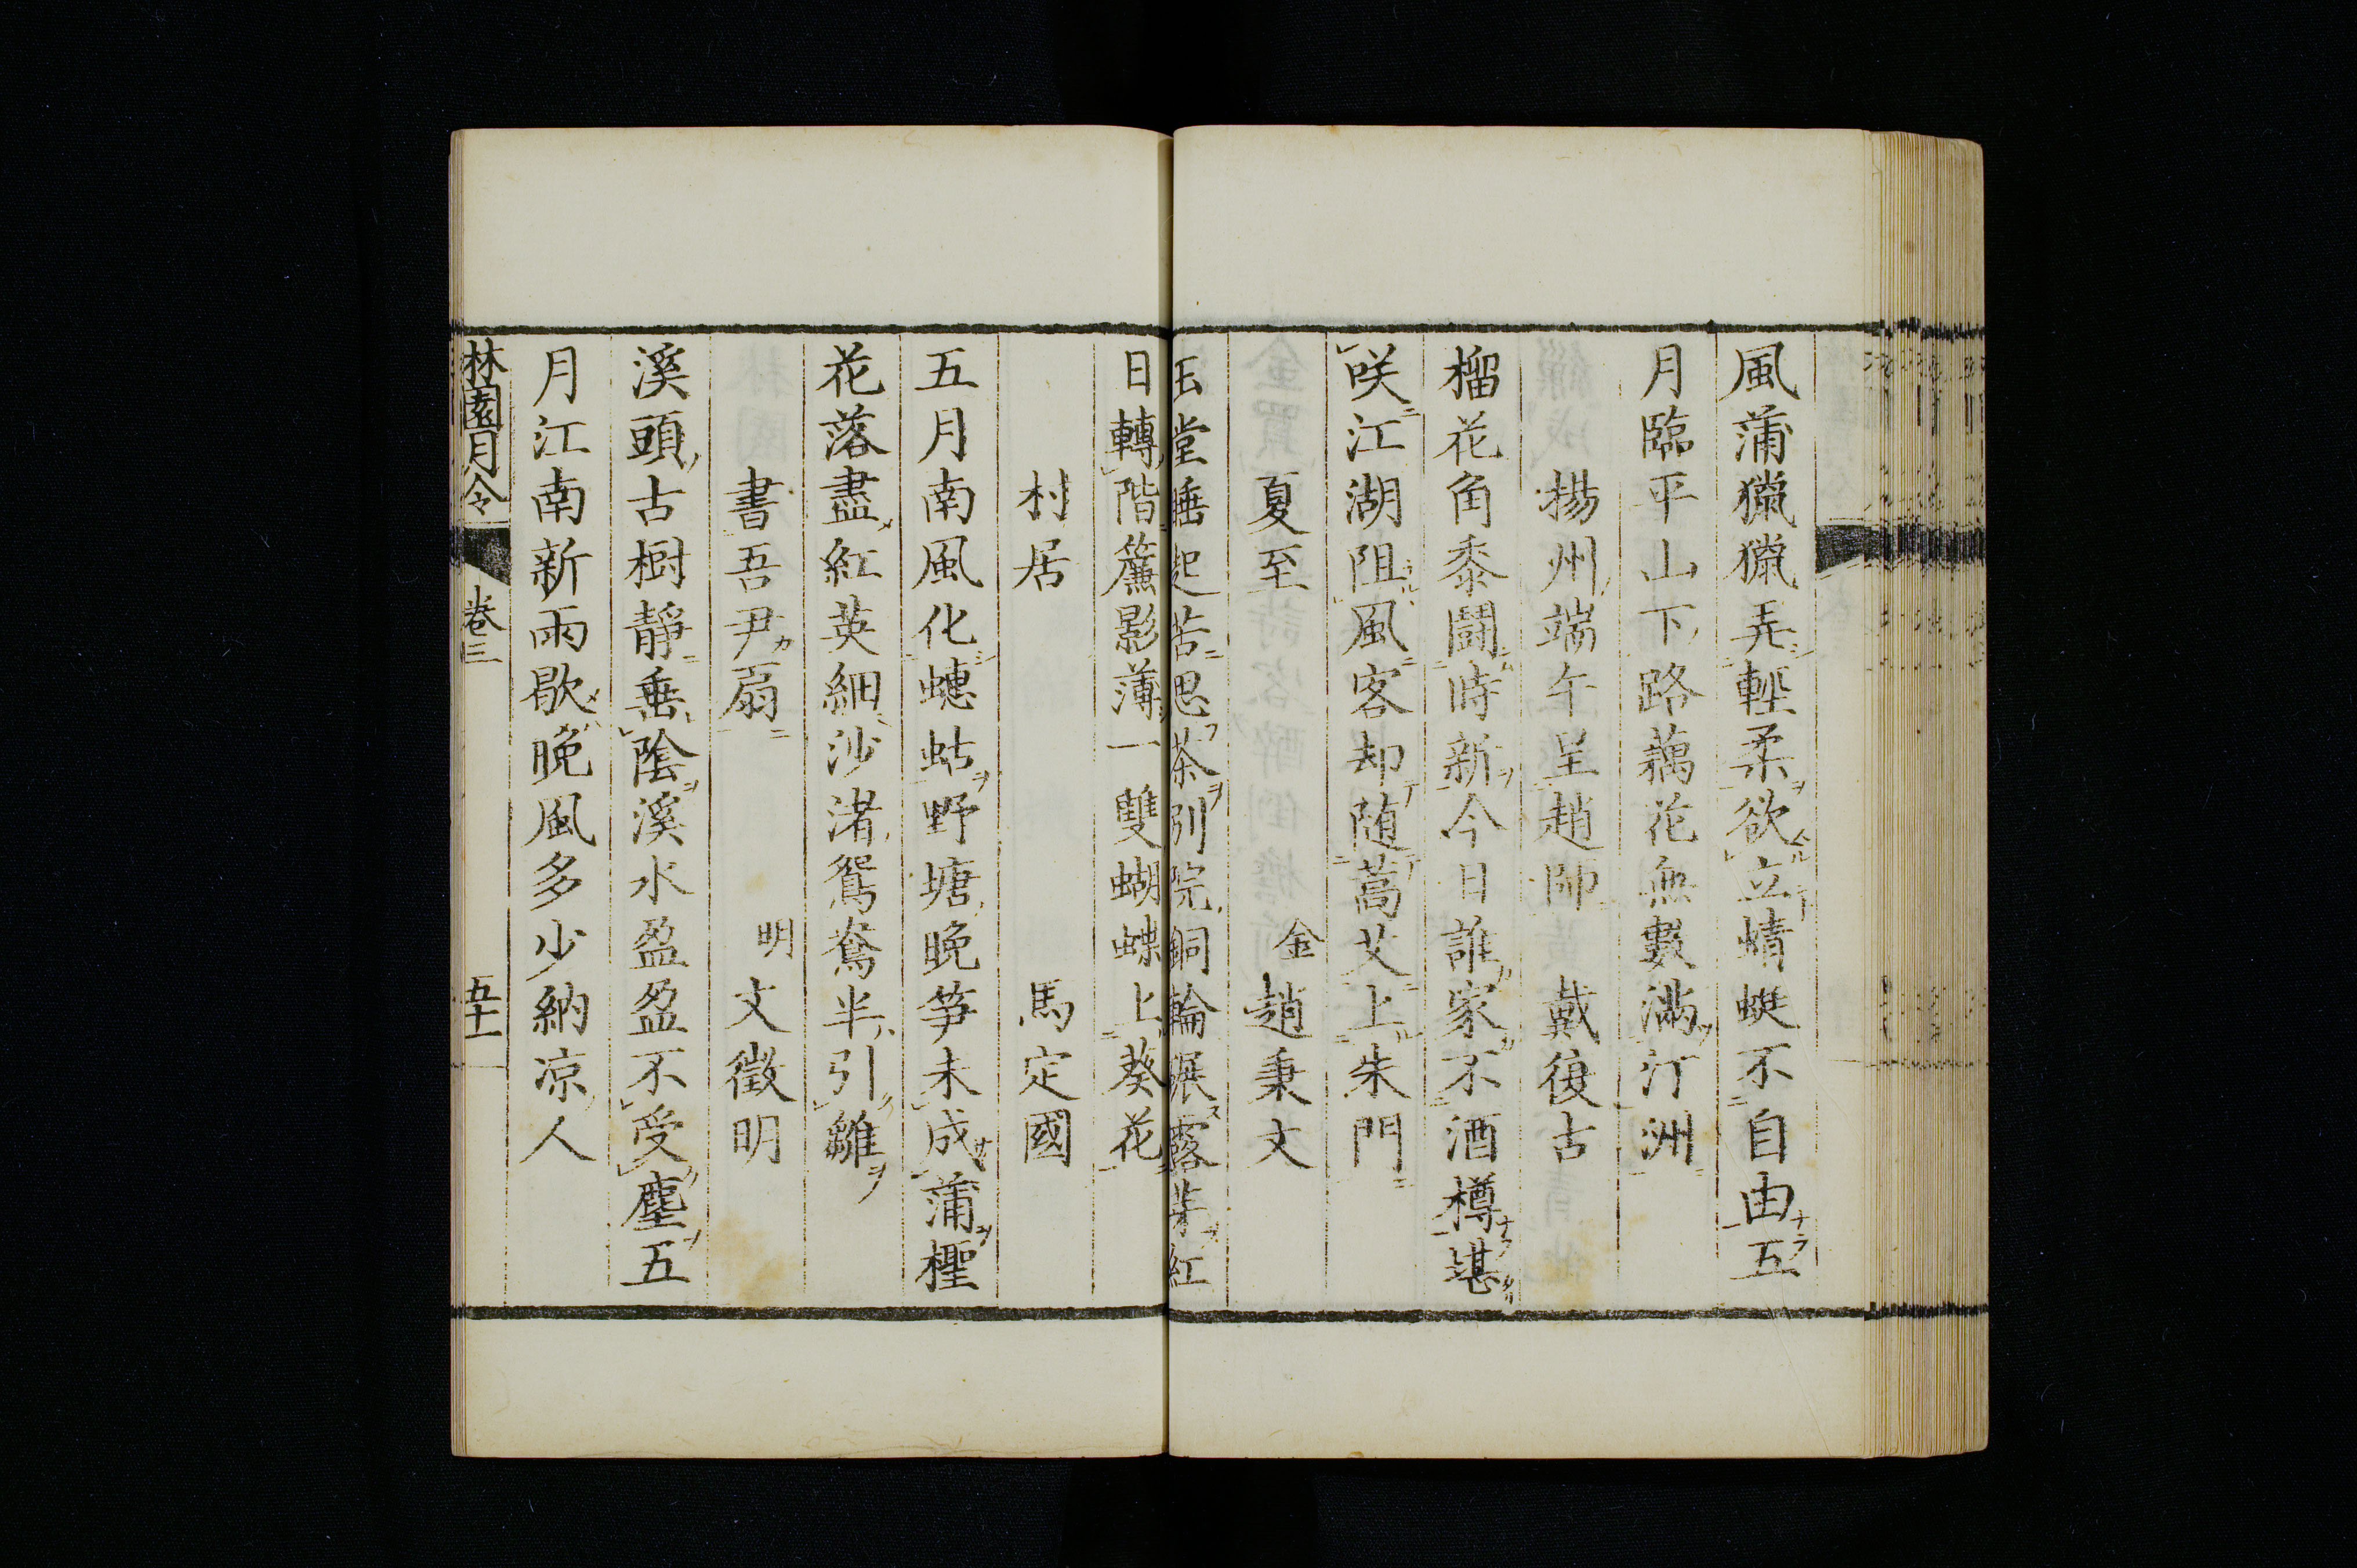 風蒲獵獵弄輕柔欲立蜻蜓不自由五
月臨平山下路藕花無數滿汀洲
揚州端午呈趙帥 戴復古
榴花角黍鬪時新今日誰家不酒樽堪
咲江湖阻風客却随蒿艾上朱門
夏至 金趙秉文
玉堂睡起苦思茶別院銅輪碾露芽紅
日轉階簾影薄一雙蝴蝶上葵花
村居 馬定國
五月南風化蟪蛄野塘晚笋未成蒲檉
花落盡紅英細沙渚鴛鴦半引雛
書吾尹扇 明文徵明
溪頭古樹靜垂陰溪水盈盈不受塵五
月江南新雨歇晚風多少納凉人
林園月令 卷三 五十一